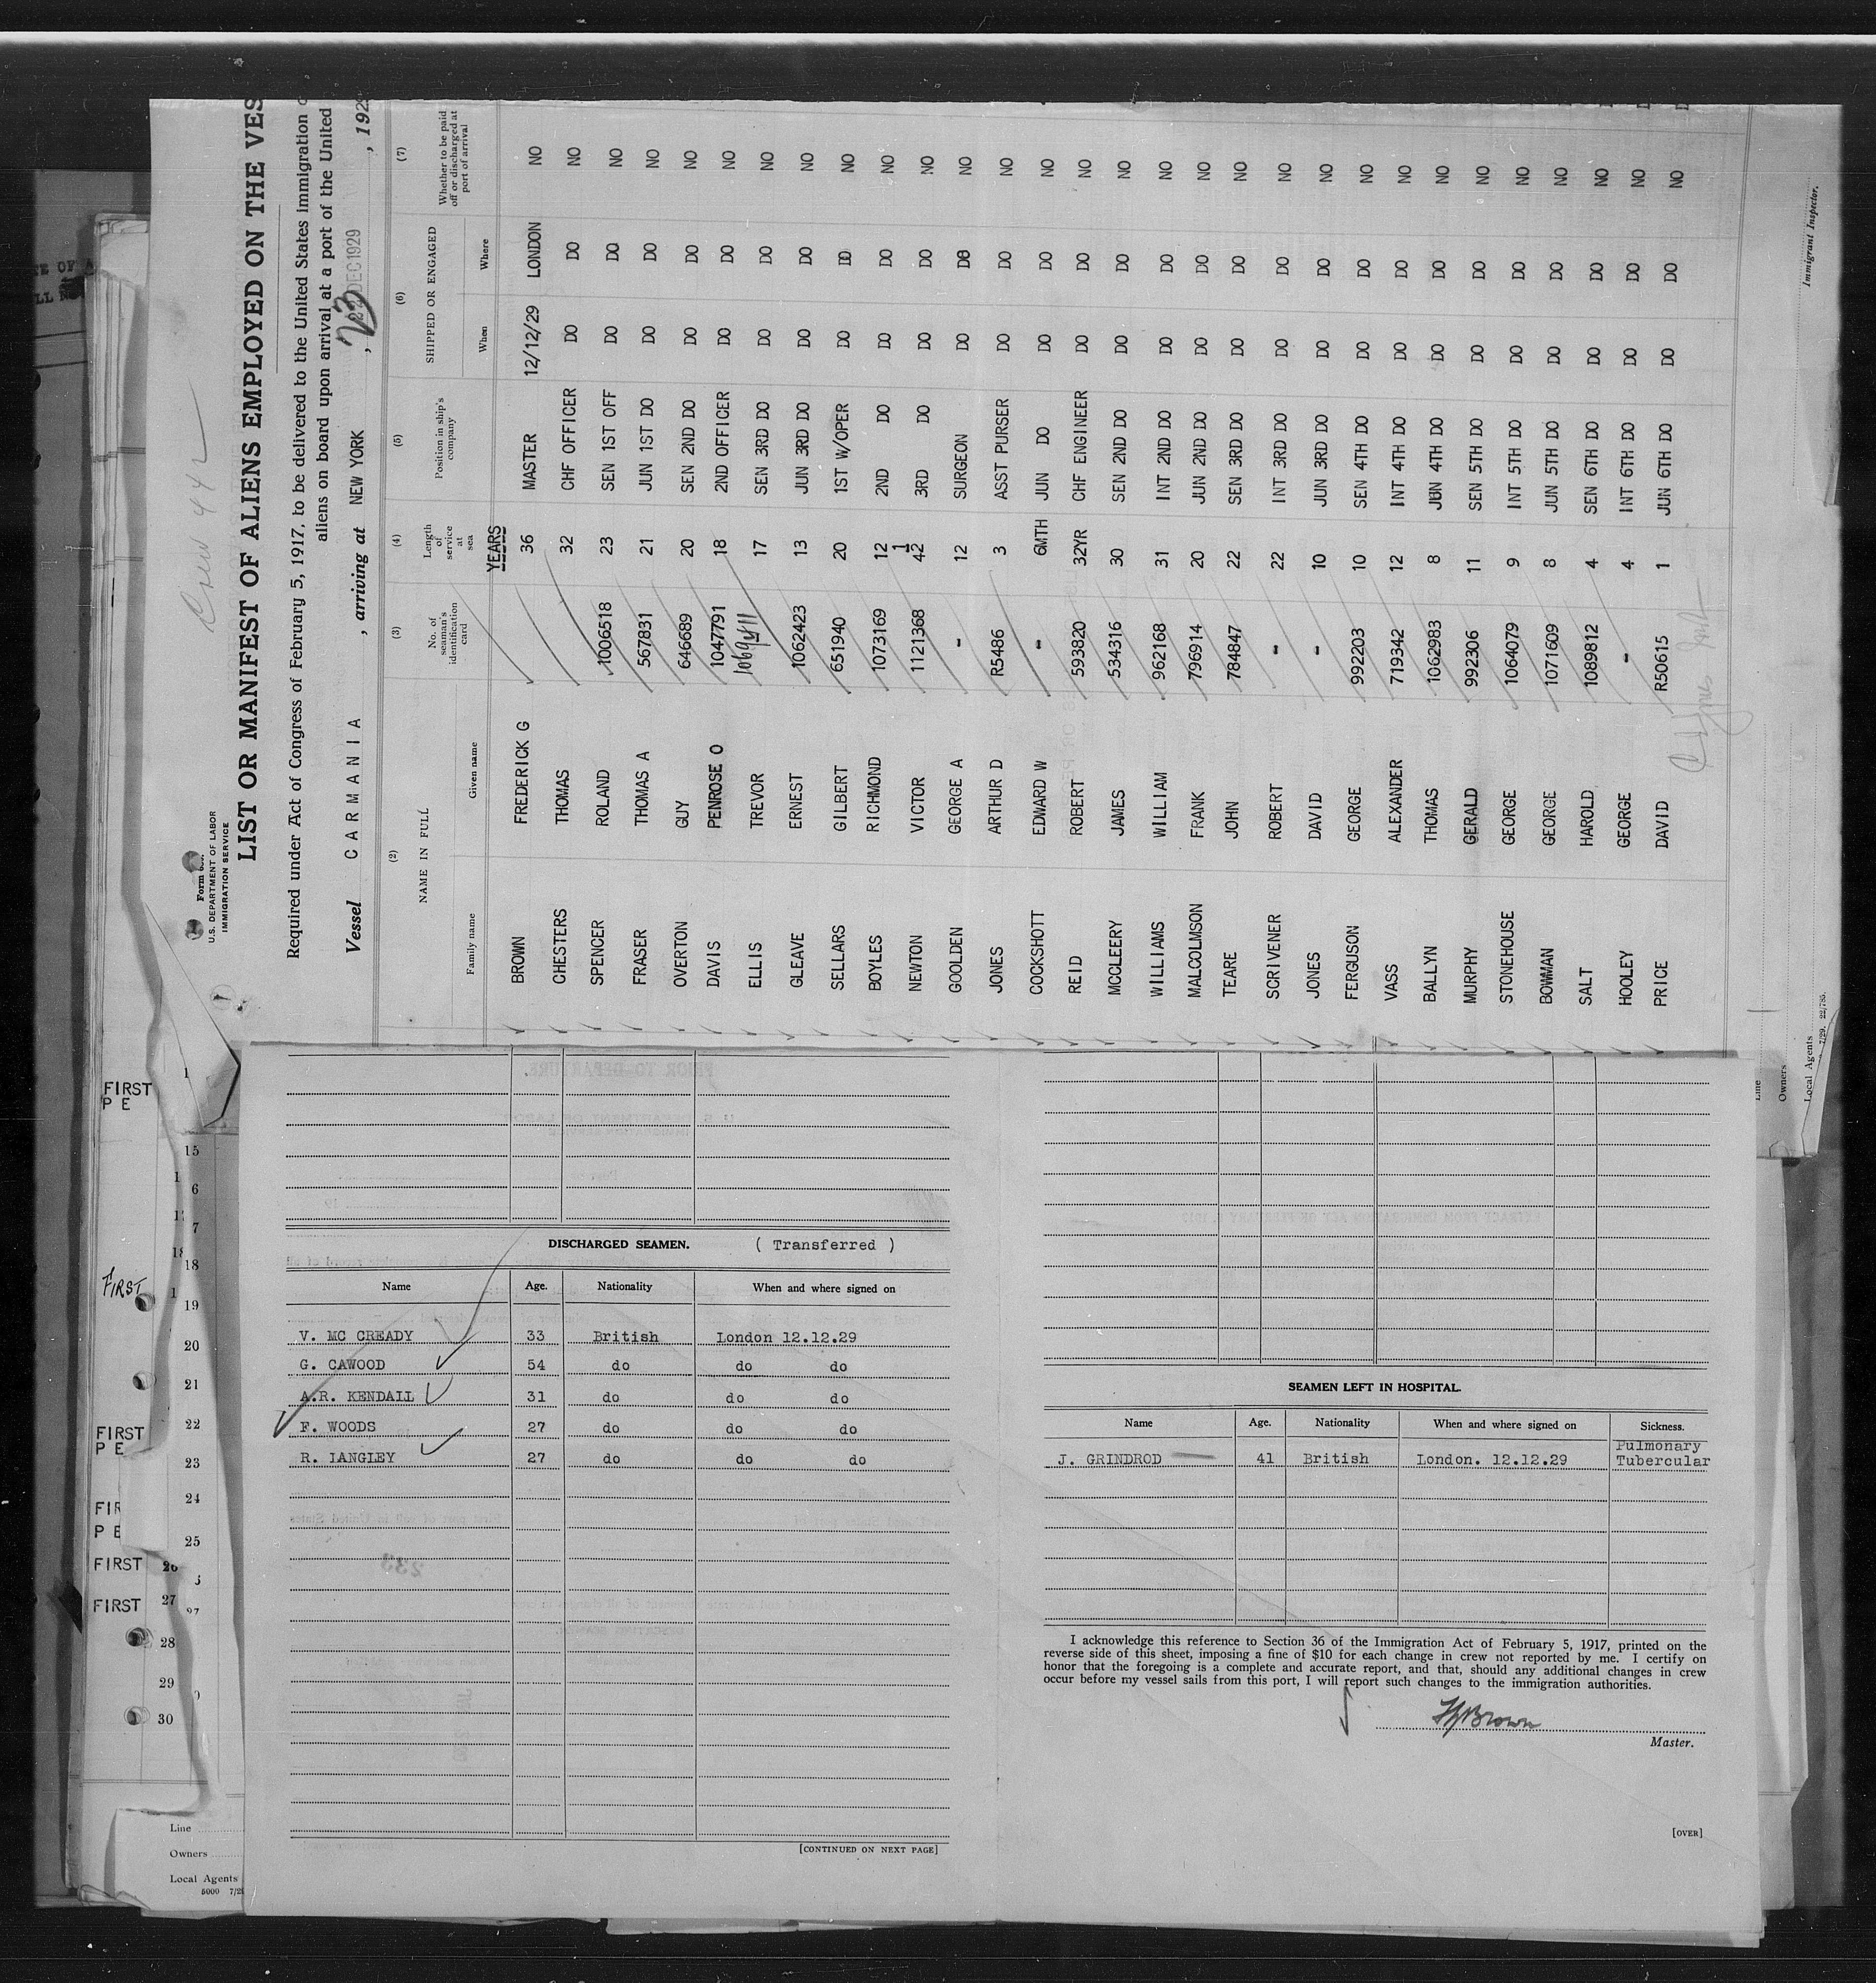 Crew 442
Form 680
U.S. DEPARTMENT OF LABOR
IMMIGRATION SERVICE
LIST OR MANIFEST OF ALIENS EMPLOYED ON THE VES
Required under Act of Congress of February 5, 1917, to be delivered to the United States immigration
aliens on board upon arrival at a port of the United
Vessel CARMANIA , arriving at NEW YORK , 23 22 DEC 1929 , 192
(2) (3) (4) (5) (6) (7)
NAME IN FULL No. of seaman's identification card Length of service at sea Position in ship's company SHIPPED OR ENGAGED Whether to be paid off or discharged at port of arrival
Family name Given name When Where
YEARS
BROWN FREDERICK G 36 MASTER 12/12/29 LONDON NO
CHESTERS THOMAS 32 CHF OFFICER DO DO NO
SPENCER ROLAND 1006518 23 SEN 1ST OFF DO DO NO
FRASER THOMAS A 567831 21 JUN 1ST DO DO DO NO
OVERTON GUY 646689 20 SEN 2ND DO DO DO NO
DAVIS PENROSE O 1047791 18 2ND OFFICER DO DO NO
ELLIS TREVOR 17 SEN 3RD DO DO DO NO
GLEAVE ERNEST 1062423 13 JUN 3RD DO DO DO NO
SELLARS GILBERT 651940 20 1ST W/OPER DO DO NO
BOYLES RICHMOND 1073169 12 2ND DO DO DO NO
NEWTON VICTOR 1121368 1 42 3RD DO DO DO NO
GOOLDEN GEORGE A - 12 SURGEON DO DO NO
JONES ARTHUR D R5486 3 ASST PURSER DO DO NO
COCKSHOTT EDWARD W - 6MTH JUN DO DO DO NO
REID ROBERT 593820 32YR CHF ENGINEER DO DO NO
MCCLEERY JAMES 534316 30 SEN 2ND DO DO DO NO
WILLIAMS WILLIAM 962168 31 INT 2ND DO DO DO NO
MALCOLMSON FRANK 796914 20 JUN 2ND DO DO DO NO
TEARE JOHN 784847 22 SEN 3RD DO DO DO NO
SCRIVENER ROBERT - 22 INT 3RD DO DO DO NO
JONES DAVID - 10 JUN 3RD DO DO DO NO
FERGUSON GEORGE 992203 10 SEN 4TH DO DO DO NO
VASS ALEXANDER 719342 12 INT 4TH DO DO DO NO
BALLYN THOMAS 1062983 8 JUN 4TH DO DO DO NO
MURPHY GERALD 992306 11 SEN 5TH DO DO DO NO
STONEHOUSE GEORGE 1064079 9 INT 5TH DO DO DO NO
BOWMAN GEORGE 1071609 8 JUN 5TH DO DO DO NO
SALT HAROLD 1089812 4 SEN 6TH DO DO DO NO
HOOLEY GEORGE - 4 INT 6TH DO DO DO NO
PRICE DAVID R50615 1 JUN 6TH DO DO DO NO
Immigrant Inspector.
Line
Owners
Local Agents
7/29. 22,785.
FIRST
P E
15
6
7
18
FIRST
19
20
21
FIRST 22
P E
23
24
P E
25
FIRST 26
FIRST 27
28
29
30
Line
Owners
Local Agents
5000 7/29
DISCHARGED SEAMEN. ( Transferred )
Name Age. Nationality When and where signed on
V. MC CREADY 33 British London 12.12.29
G. CAWOOD 54 do do do
A.R. KENDALL 31 do do do
F. WOODS 27 do do do
R. LANGLEY 27 do do do
[CONTINUED ON NEXT PAGE]
SEAMEN LEFT IN HOSPITAL.
Name Age. Nationality When and where signed on Sickness.
J. GRINDROD 41 British London. 12.12.29 Pulmonary Tubercular
I acknowledge this reference to Section 36 of the Immigration Act of February 5, 1917, printed on the
reverse side of this sheet, imposing a fine of $10 for each change in crew not reported by me. I certify on
honor that the foregoing is a complete and accurate report, and that, should any additional changes in crew
occur before my vessel sails from this port, I will report such changes to the immigration authorities.
FGBrown
Master.
[OVER]